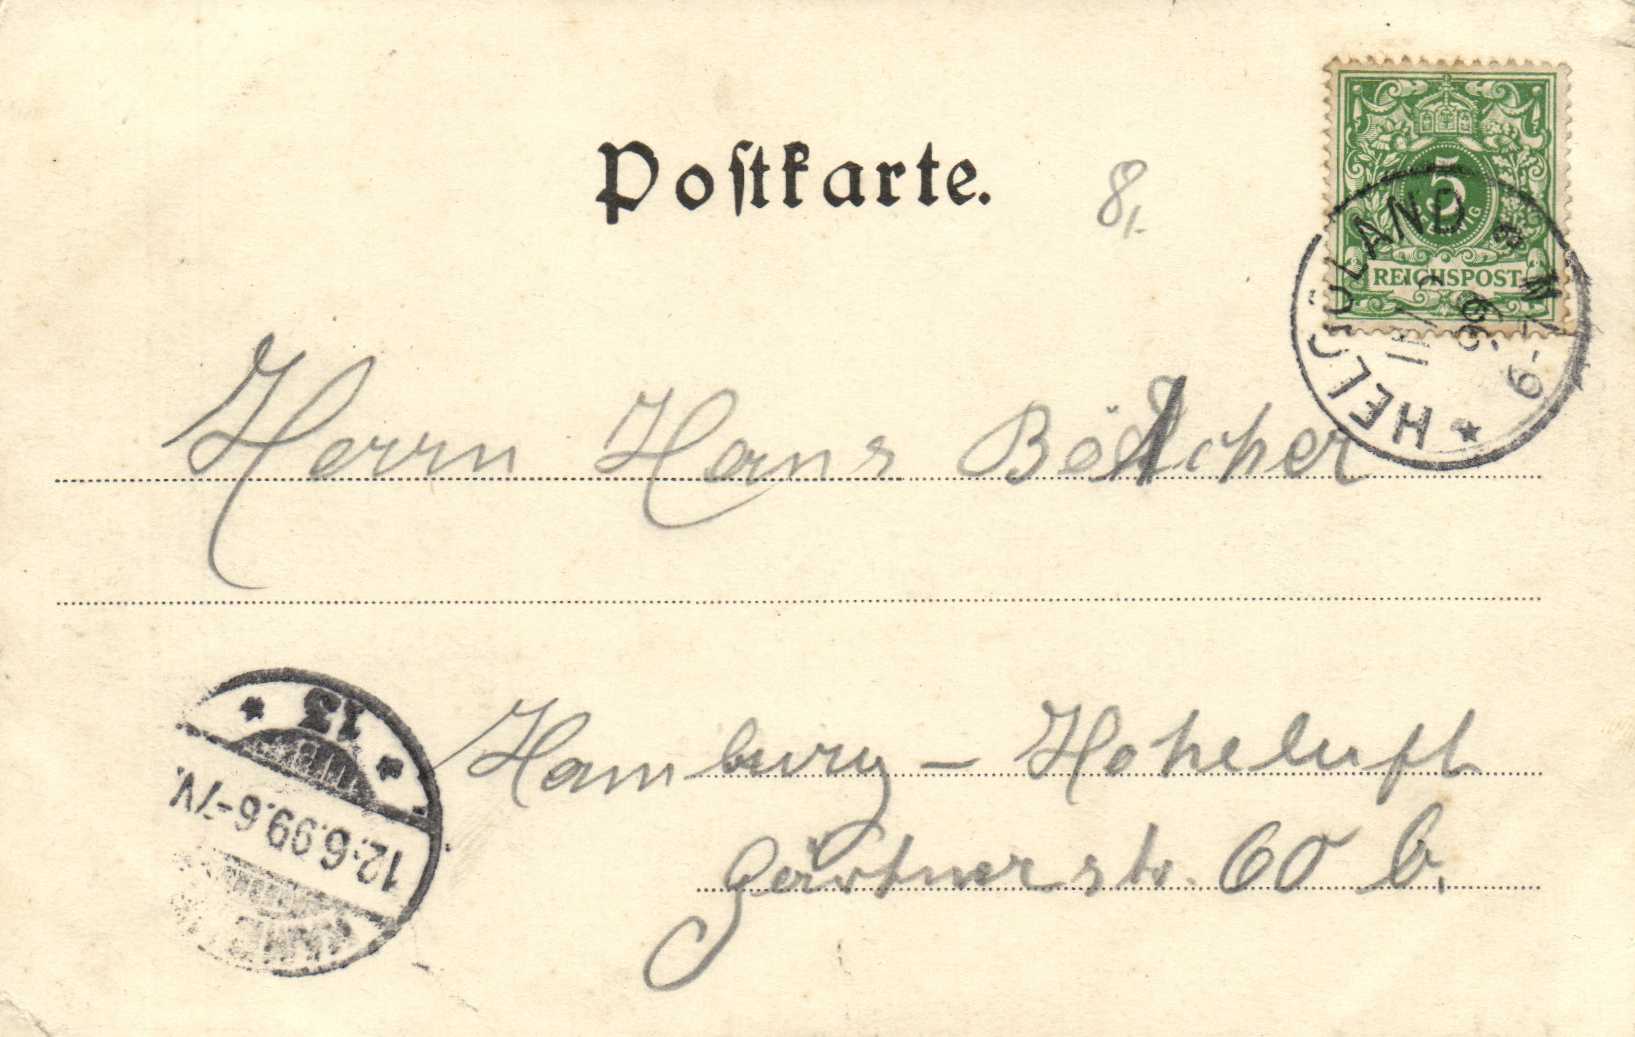 Postkarte.
8,-
5
PFENNIG
REICHSPOST
* HELGOLAND
99
6-7 N
Herrn Hans Bötcher
Hamburg - Hoheluft
Gärtnerstr. 60 b.
* 13 *
12.6.99.6-7V.